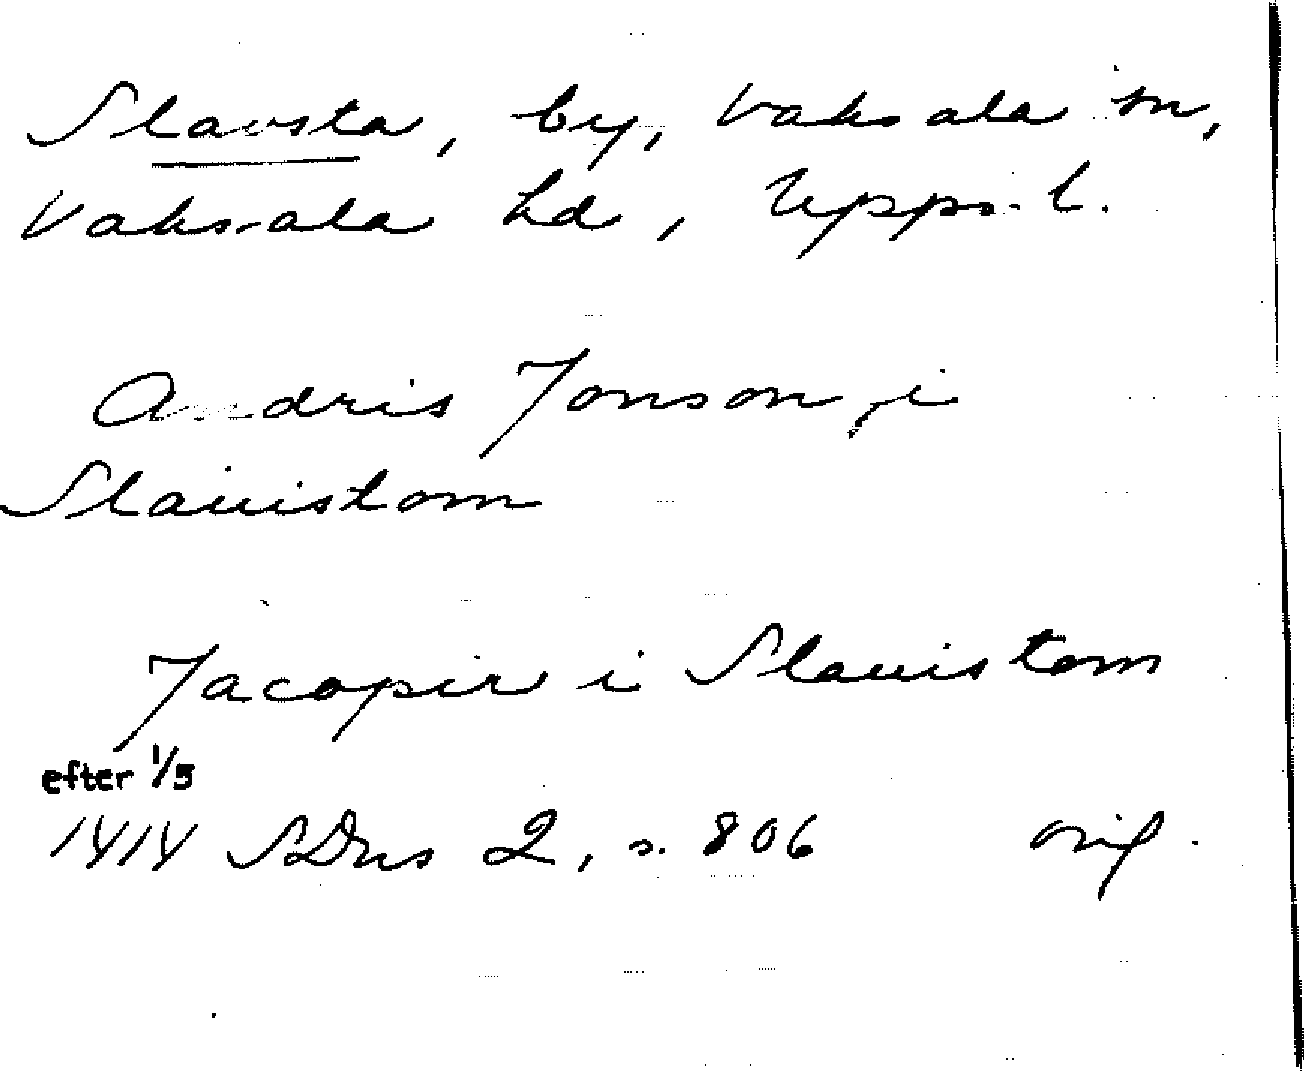 Slavsta, by, Vaksala sn,
Vaksala hd, Upps. l.
Andris Jonson, i
Slauistom
Jacoper i Slauistom
efter 1/5
1414 SDns 2, s. 806 orig.